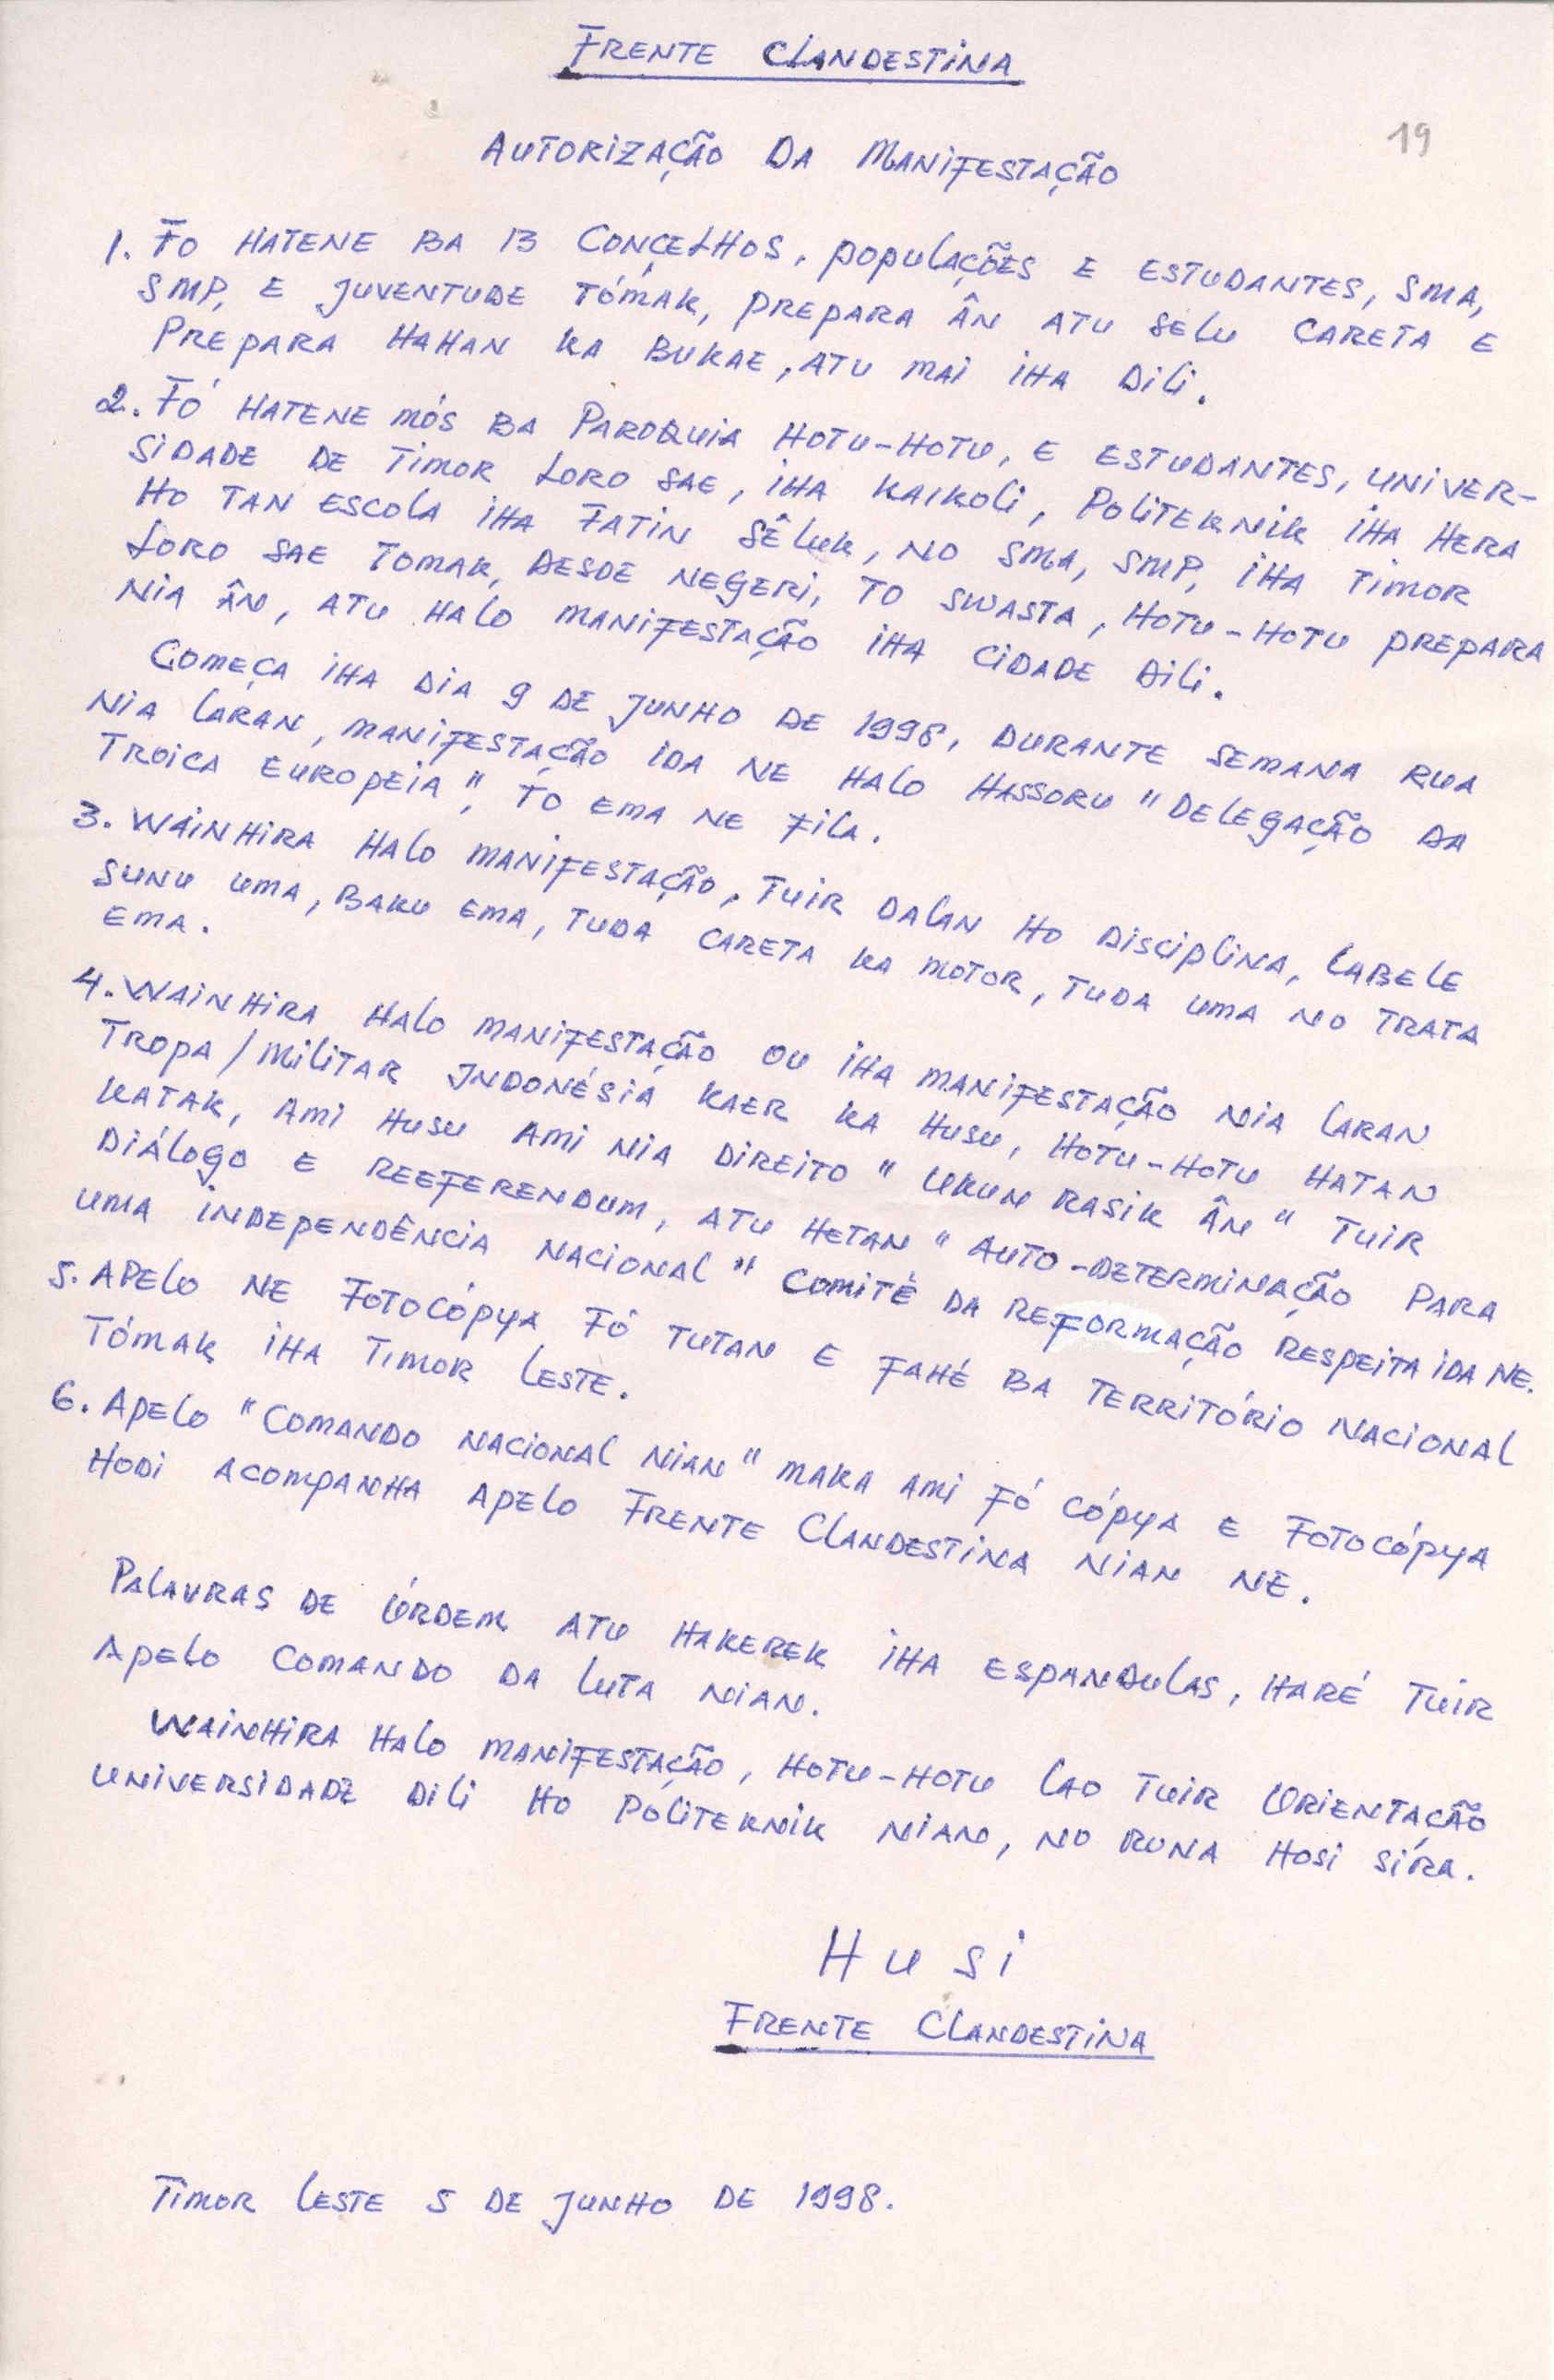 FRENTE CLANDESTINA
19
AUTORIZAÇÃO DA MANIFESTAÇÃO
1. FO HATENE BA 13 CONÇELHOS, POPULAÇÕES E ESTUDANTES, SMA,
SMP, E JUVENTUDE TÓMAK, PREPARA ÂN ATU SELU CARETA E
PREPARA HAHAN KA BUKAE, ATU MAI IHA DILI.
2. FÓ HATENE MÓS BA PAROQUIA HOTU-HOTU, E ESTUDANTES, UNIVER-
SIDADE DE TIMOR LORO SAE, IHA KAIKOLI, POLITEKNIK IHA HERA
HO TAN ESCOLA IHA FATIN SÊLUK, NO SMA, SMP, IHA TIMOR
LORO SAE TOMAK, DESDE NEGERI, TO SWASTA, HOTU-HOTU PREPARA
NIA ÂN, ATU HALO MANIFESTAÇÃO IHA CIDADE DILI.
COMEÇA IHA DIA 9 DE JUNHO DE 1998, DURANTE SEMANA RUA
NIA LARAN, MANIFESTAÇÃO IDA NE HALO HASSORU "DELEGAÇÃO DA
TROICA EUROPEIA", TO EMA NE FILA.
3. WAINHIRA HALO MANIFESTAÇÃO, TUIR DALAN HO DISCIPLINA, LABELE
SUNU UMA, BAKU EMA, TUDA CARETA KA MOTOR, TUDA UMA NO TRATA
EMA.
4. WAINHIRA HALO MANIFESTAÇÃO OU IHA MANIFESTAÇÃO NIA LARAN
TROPA/MILITAR INDONÉSIA KAER KA HUSU, HOTU-HOTU HATAN
KATAK, AMI HUSU AMI NIA DIREITO "UKUN RASIK ÂN" TUIR
DIÁLOGO E REEFERENDUM, ATU HETAN "AUTO-DETERMINAÇÃO PARA
UMA INDEPENDÊNCIA NACIONAL" COMITÉ DA REFORMAÇÃO RESPEITA IDA NE.
5. APELO NE FOTOCÓPYA FÓ TUTAN E FAHÉ BA TERRITÓRIO NACIONAL
TÓMAK IHA TIMOR LESTE.
6. APELO "COMANDO NACIONAL NIAN" MAKA AMI FÓ CÓPYA E FOTOCÓPYA
HODI ACOMPANHA APELO FRENTE CLANDESTINA NIAN NE.
PALAVRAS DE ÓRDEM ATU HAKEREK IHA ESPANDULAS, HARÉ TUIR
APELO COMANDO DA LUTA NIAN.
WAINHIRA HALO MANIFESTAÇÃO, HOTU-HOTU LAO TUIR ORIENTAÇÃO
UNIVERSIDADE DILI HO POLITEKNIK NIAN, NO RONA HOSI SIRA.
HUSI
FRENTE CLANDESTINA
TIMOR LESTE 5 DE JUNHO DE 1998.